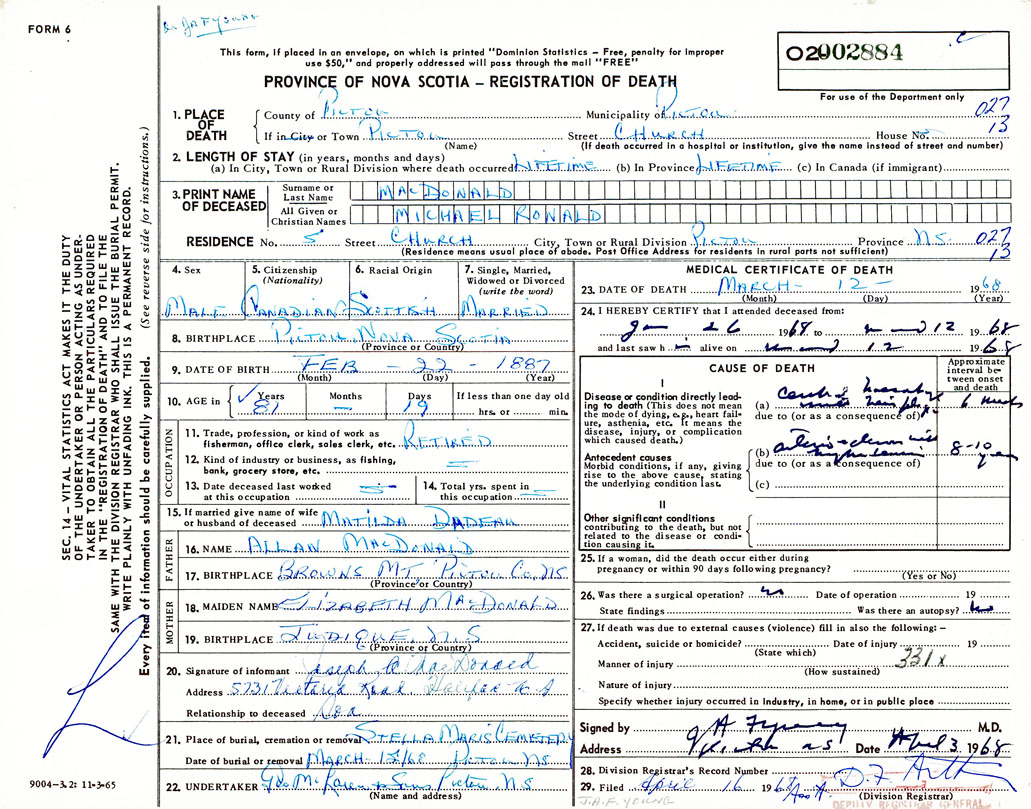 FORM 6
Dr JAF Young
This form, if placed in an envelope, on which is printed "Dominion Statistics — Free, penalty for improper
use $50," and properly addressed will pass through the mail "FREE"
PROVINCE OF NOVA SCOTIA – REGISTRATION OF DEATH
02902884
For use of the Department only
1. PLACE OF DEATH
County of PICTOU Municipality of PICTOU 027
If in City or Town PICTOU Street CHURCH House No. 13
(Name) (If death occurred in a hospital or institution, give the name instead of street and number)
2. LENGTH OF STAY (in years, months and days)
(a) In City, Town or Rural Division where death occurred LIFETIME (b) In Province LIFETIME (c) In Canada (if immigrant)
3. PRINT NAME OF DECEASED
Surname or Last Name MACDONALD
All Given or Christian Names MICHAEL RONALD
RESIDENCE No. 5 Street CHURCH City, Town or Rural Division PICTOU Province N.S. 027
13
(Residence means usual place of abode. Post Office Address for residents in rural parts not sufficient)
4. Sex MALE
5. Citizenship (Nationality) CANADIAN
6. Racial Origin SCOTTISH
7. Single, Married, Widowed or Divorced (write the word) MARRIED
8. BIRTHPLACE PICTOU NOVA SCOTIA
(Province or Country)
9. DATE OF BIRTH FEB - 22 - 1887
(Month) (Day) (Year)
10. AGE in Years 81 Months — Days 19 If less than one day old
hrs. or min.
OCCUPATION
11. Trade, profession, or kind of work as
fisherman, office clerk, sales clerk, etc. RETIRED
12. Kind of industry or business, as fishing,
bank, grocery store, etc.
13. Date deceased last worked
at this occupation
14. Total yrs. spent in
this occupation
15. If married give name of wife
or husband of deceased MATILDA DADEAU
FATHER
16. NAME ALLAN MACDONALD
17. BIRTHPLACE BROWNS MT, PICTOU CO, NS
(Province or Country)
MOTHER
18. MAIDEN NAME ELIZABETH MACDONALD
19. BIRTHPLACE JUDIQUE, N.S
(Province or Country)
20. Signature of informant Joseph C MacDonald
Address 5731 Victoria Road Halifax N S
Relationship to deceased Son
21. Place of burial, cremation or removal STELLA MARIS CEMETERY
Date of burial or removal MARCH 15/68 PICTOU NS
22. UNDERTAKER Geo McLaren & Sons Pictou, N.S
(Name and address)
MEDICAL CERTIFICATE OF DEATH
23. DATE OF DEATH MARCH - 12 - 1968
(Month) (Day) (Year)
24. I HEREBY CERTIFY that I attended deceased from:
Jan 26 1968 to March 12 1968
and last saw him alive on March 12 1968
CAUSE OF DEATH
Approximate interval between onset and death
I
Disease or condition directly leading to death (This does not mean the mode of dying, e.g., heart failure, asthenia, etc. It means the disease, injury, or complication which caused death.)
(a) 6 weeks
due to (or as a consequence of)
Antecedent causes
Morbid conditions, if any, giving rise to the above cause, stating the underlying condition last.
(b) 8-10 years
due to (or as a consequence of)
(c)
II
Other significant conditions
contributing to the death, but not related to the disease or condition causing it.
25. If a woman, did the death occur either during
pregnancy or within 90 days following pregnancy?
(Yes or No)
26. Was there a surgical operation? no Date of operation 19
State findings Was there an autopsy? No
27. If death was due to external causes (violence) fill in also the following: –
Accident, suicide or homicide? Date of injury 19
(State which)
Manner of injury 331x
(How sustained)
Nature of injury
Specify whether injury occurred in industry, in home, or in public place
Signed by M.D.
Address Pictou NS Date April 3 1968
28. Division Registrar's Record Number
29. Filed April 16 1968
(Division Registrar)
DEPUTY REGISTRAR GENERAL
J.A.F. YOUNG
SEC. 14 – VITAL STATISTICS ACT MAKES IT THE DUTY
OF THE UNDERTAKER OR PERSON ACTING AS UNDER-
TAKER TO OBTAIN ALL THE PARTICULARS REQUIRED
IN THE "REGISTRATION OF DEATH" AND TO FILE THE
SAME WITH THE DIVISION REGISTRAR WHO SHALL ISSUE THE BURIAL PERMIT.
WRITE PLAINLY WITH UNFADING INK. THIS IS A PERMANENT RECORD.
Every item of information should be carefully supplied. (See reverse side for instructions.)
9004–3.2: 11-3-65